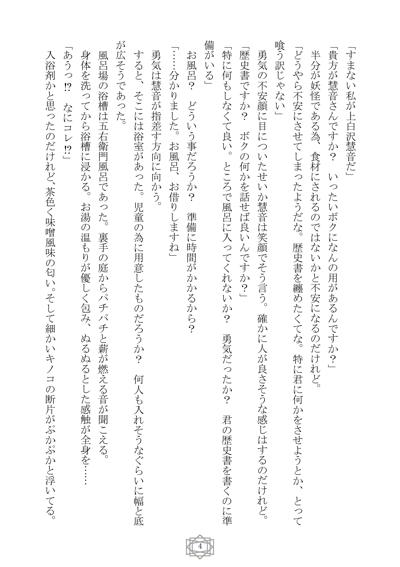 「すまない私が上白沢慧音だ」
「貴方が慧音さんですか？　いったいボクになんの用があるんですか？」
　半分が妖怪である為、食材にされるのではないかと不安になるのだけれど。
「どうやら不安にさせてしまったようだな。歴史書を纏めたくてな。特に君に何かをさせようとか、とって
喰う訳じゃない」
　勇気の不安顔に目についたせいか慧音は笑顔でそう言う。確かに人が良さそうな感じはするのだけれど。
「歴史書ですか？　ボクの何かを話せば良いんですか？」
「特に何もしなくて良い。ところで風呂に入ってくれないか？　勇気だったか？　君の歴史書を書くのに準
備がいる」
　お風呂？　どういう事だろうか？　準備に時間がかかるから？
「……分かりました。お風呂、お借りしますね」
　勇気は慧音が指差す方向に向かう。
　すると、そこには浴室があった。児童の為に用意したものだろうか？　何人も入れそうなぐらいに幅と底
が広そうであった。
　風呂場の浴槽は五右衛門風呂であった。裏手の庭からパチパチと薪が燃える音が聞こえる。
　身体を洗ってから浴槽に浸かる。お湯の温もりが優しく包み、ぬるぬるとした感触が全身を……
「あうっ⁉　なにコレ⁉」
　入浴剤かと思ったのだけれど、茶色く味噌風味の匂い。そして細かいキノコの断片がぷかぷかと浮いてる。
4